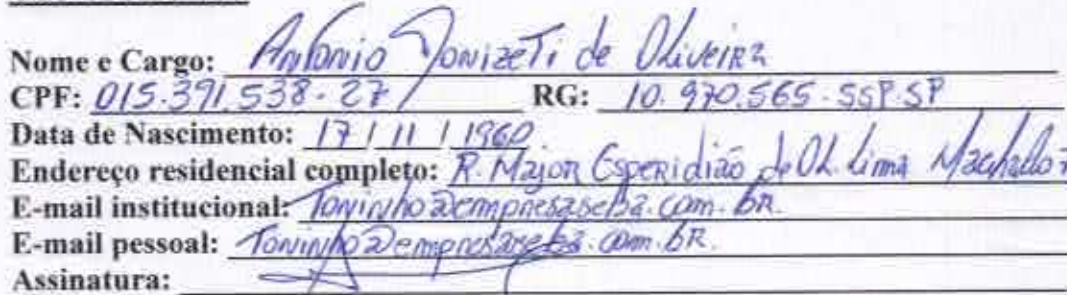 Nome e Cargo: Antonio Donizeti de Oliveira
CPF: 015.391.538-27 RG: 10.970.565-SSP.SP
Data de Nascimento: 17 / 11 / 1960
Endereço residencial completo: R. Major Esperidião de Ol. Lima Machado
E-mail institucional: Toninho@empresaseba.com.br.
E-mail pessoal: Toninho@empresaseba.com.br.
Assinatura: